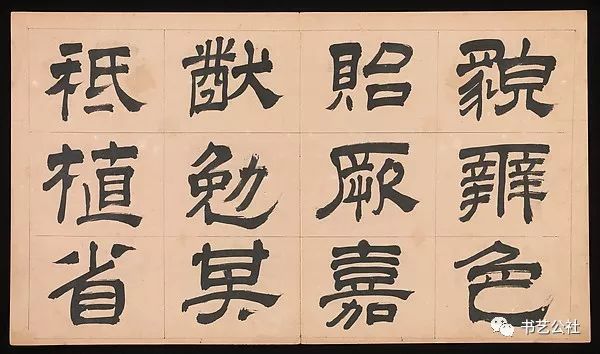 貌辨色
貽厥嘉
猷勉其
祗植省
书艺公社